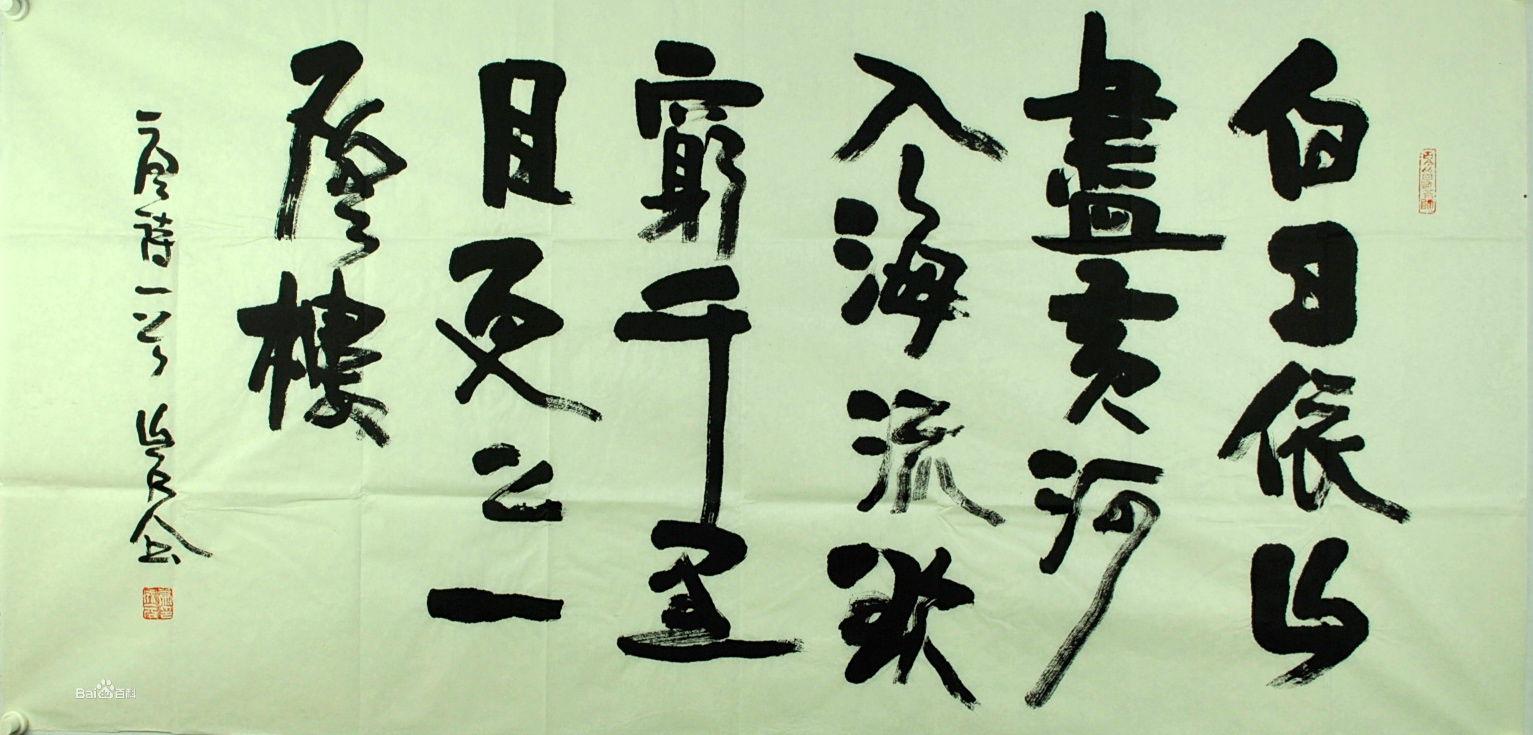 白日依山
盡黄河
入海流欲
窮千里
目更上一
層樓
唐詩一首
Bai du 百科